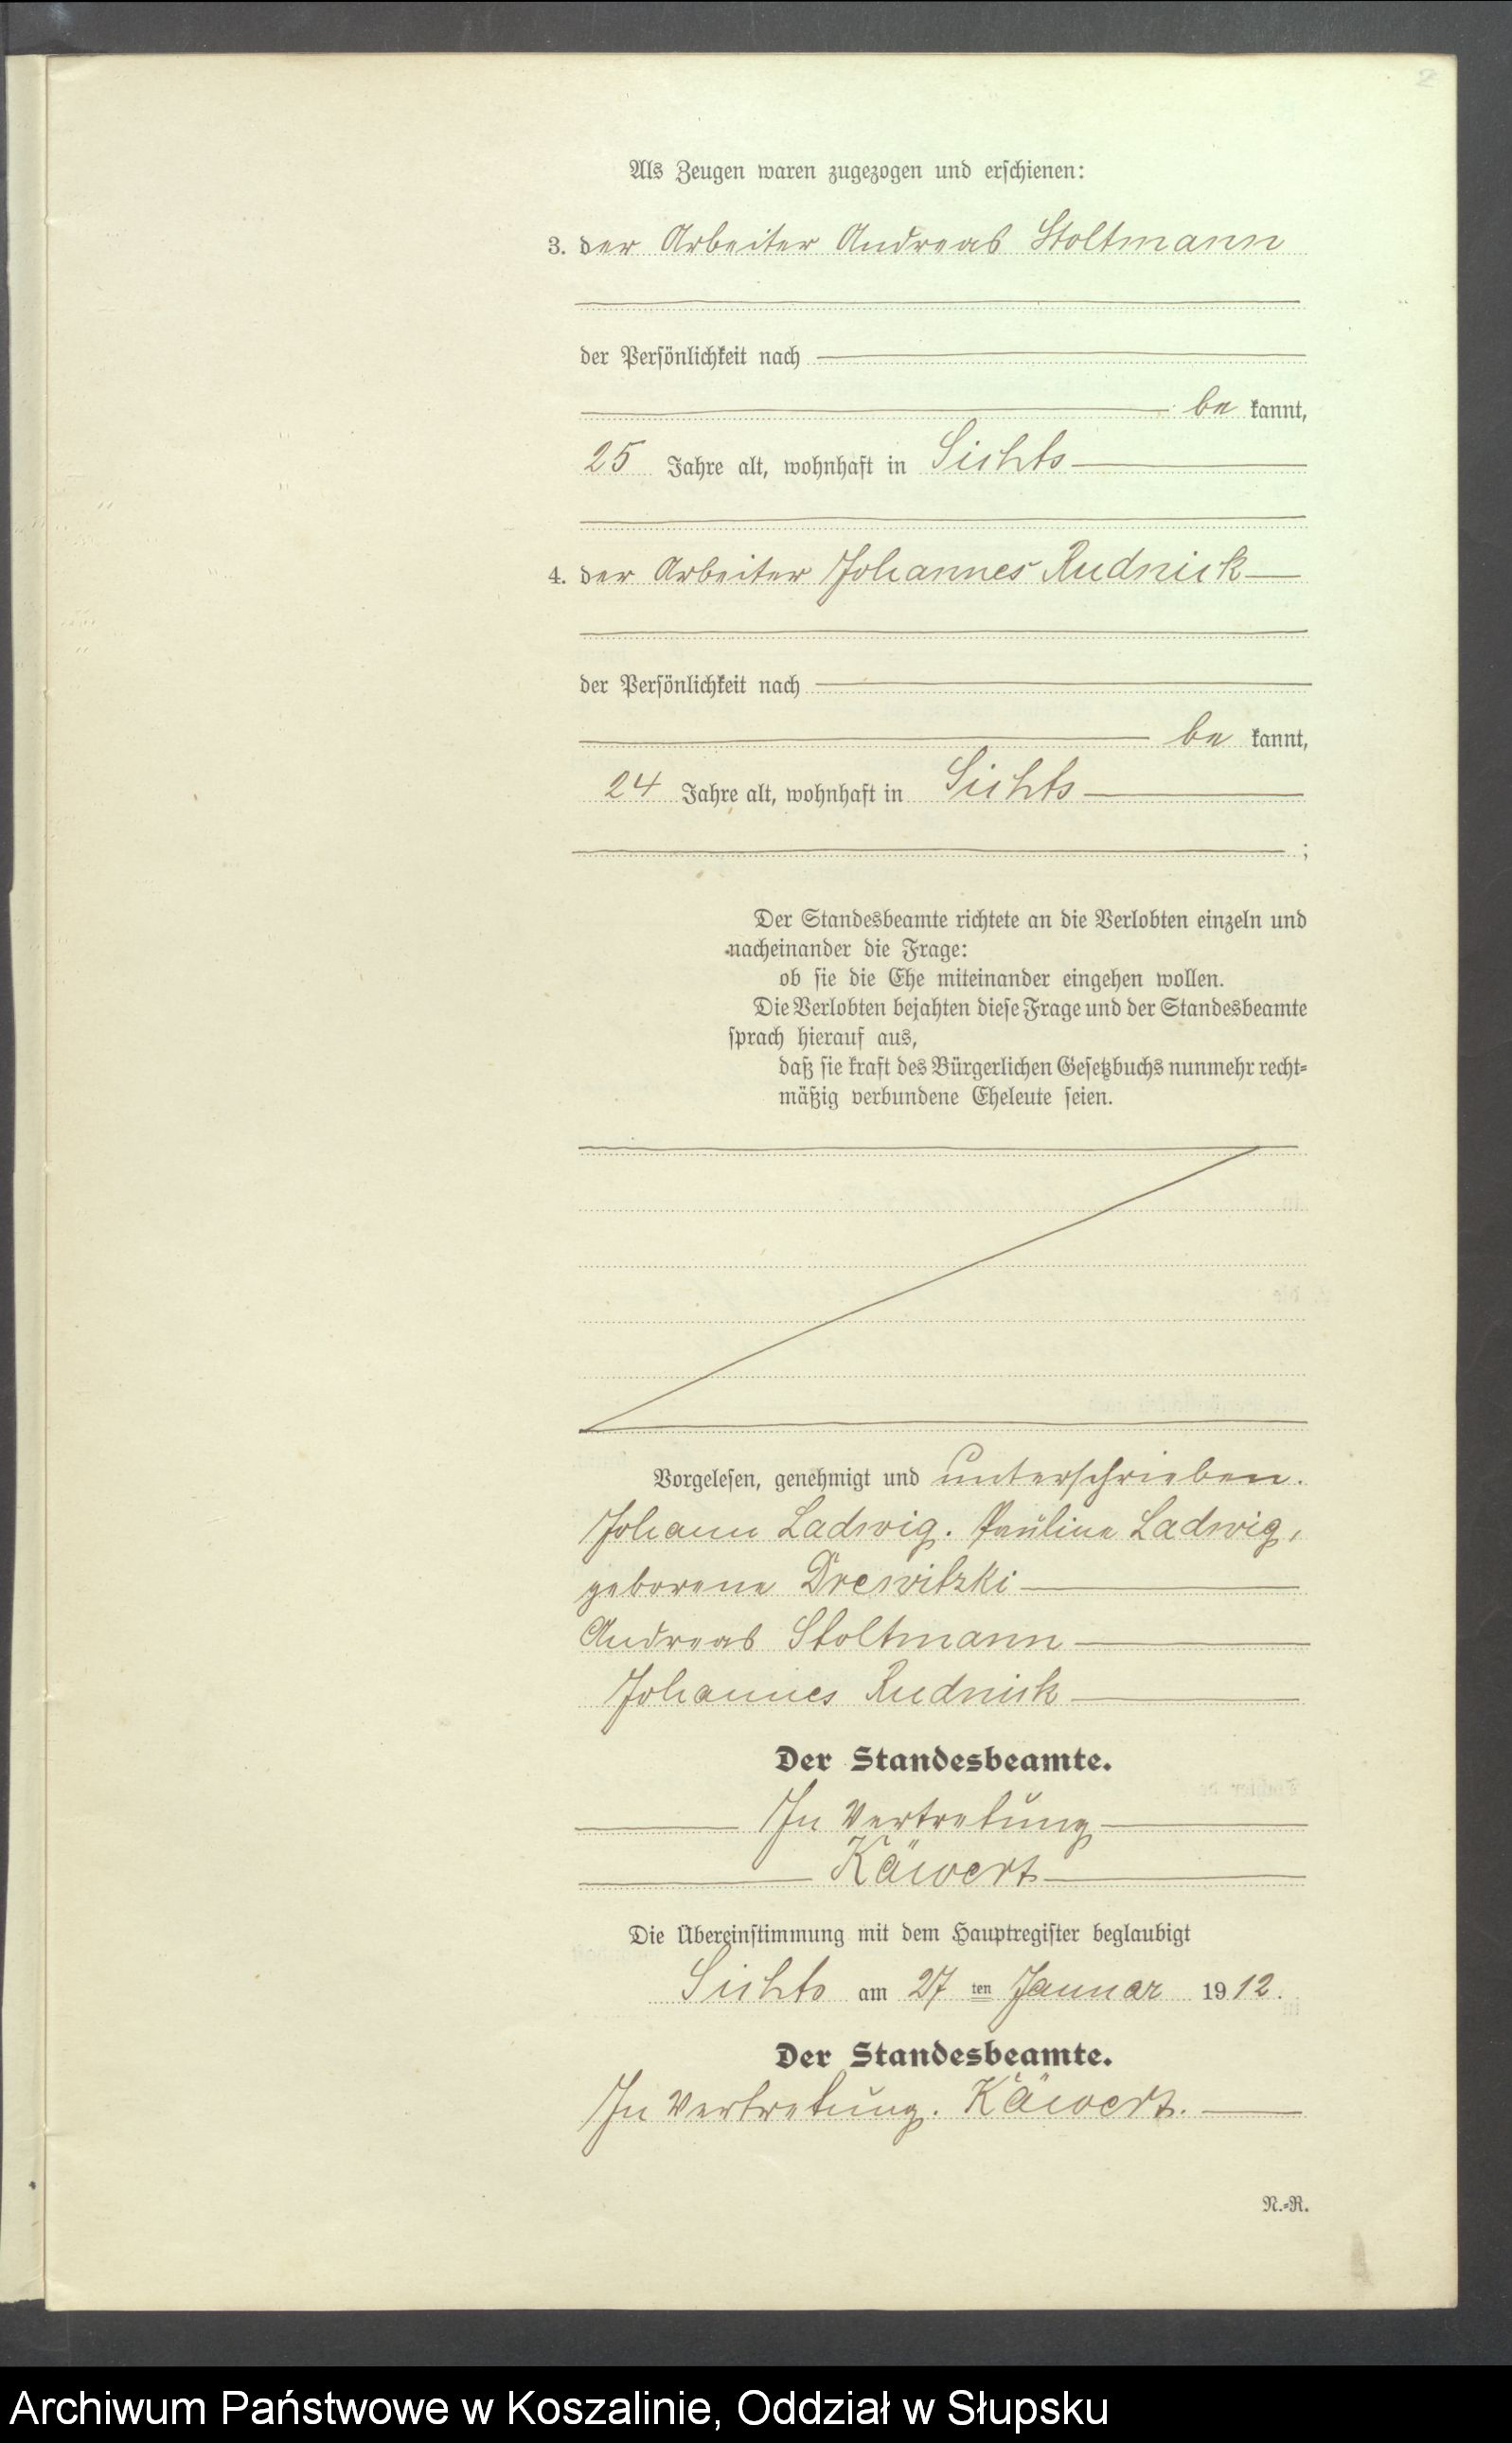 2
Als Zeugen waren zugezogen und erschienen:
3. der Arbeiter Andreas Stoltmann
der Persönlichkeit nach
be kannt,
25 Jahre alt, wohnhaft in Sichts
4. der Arbeiter Johannes Rudnick
der Persönlichkeit nach
be kannt,
24 Jahre alt, wohnhaft in Sichts
;
Der Standesbeamte richtete an die Verlobten einzeln und
nacheinander die Frage:
ob sie die Ehe miteinander eingehen wollen.
Die Verlobten bejahten diese Frage und der Standesbeamte
sprach hierauf aus,
daß sie kraft des Bürgerlichen Gesetzbuchs nunmehr recht-
mäßig verbundene Eheleute seien.
Vorgelesen, genehmigt und unterschrieben.
Johann Ladwig. Pauline Ladwig,
geborene Drewitzki
Andreas Stoltmann
Johannes Rudnick
Der Standesbeamte.
In Vertretung
Käwert
Die Übereinstimmung mit dem Hauptregister beglaubigt
Sichts am 27 ten Januar 1912.
Der Standesbeamte.
In Vertretung. Käwert.
N.-R.
Archiwum Państwowe w Koszalinie, Oddział w Słupsku